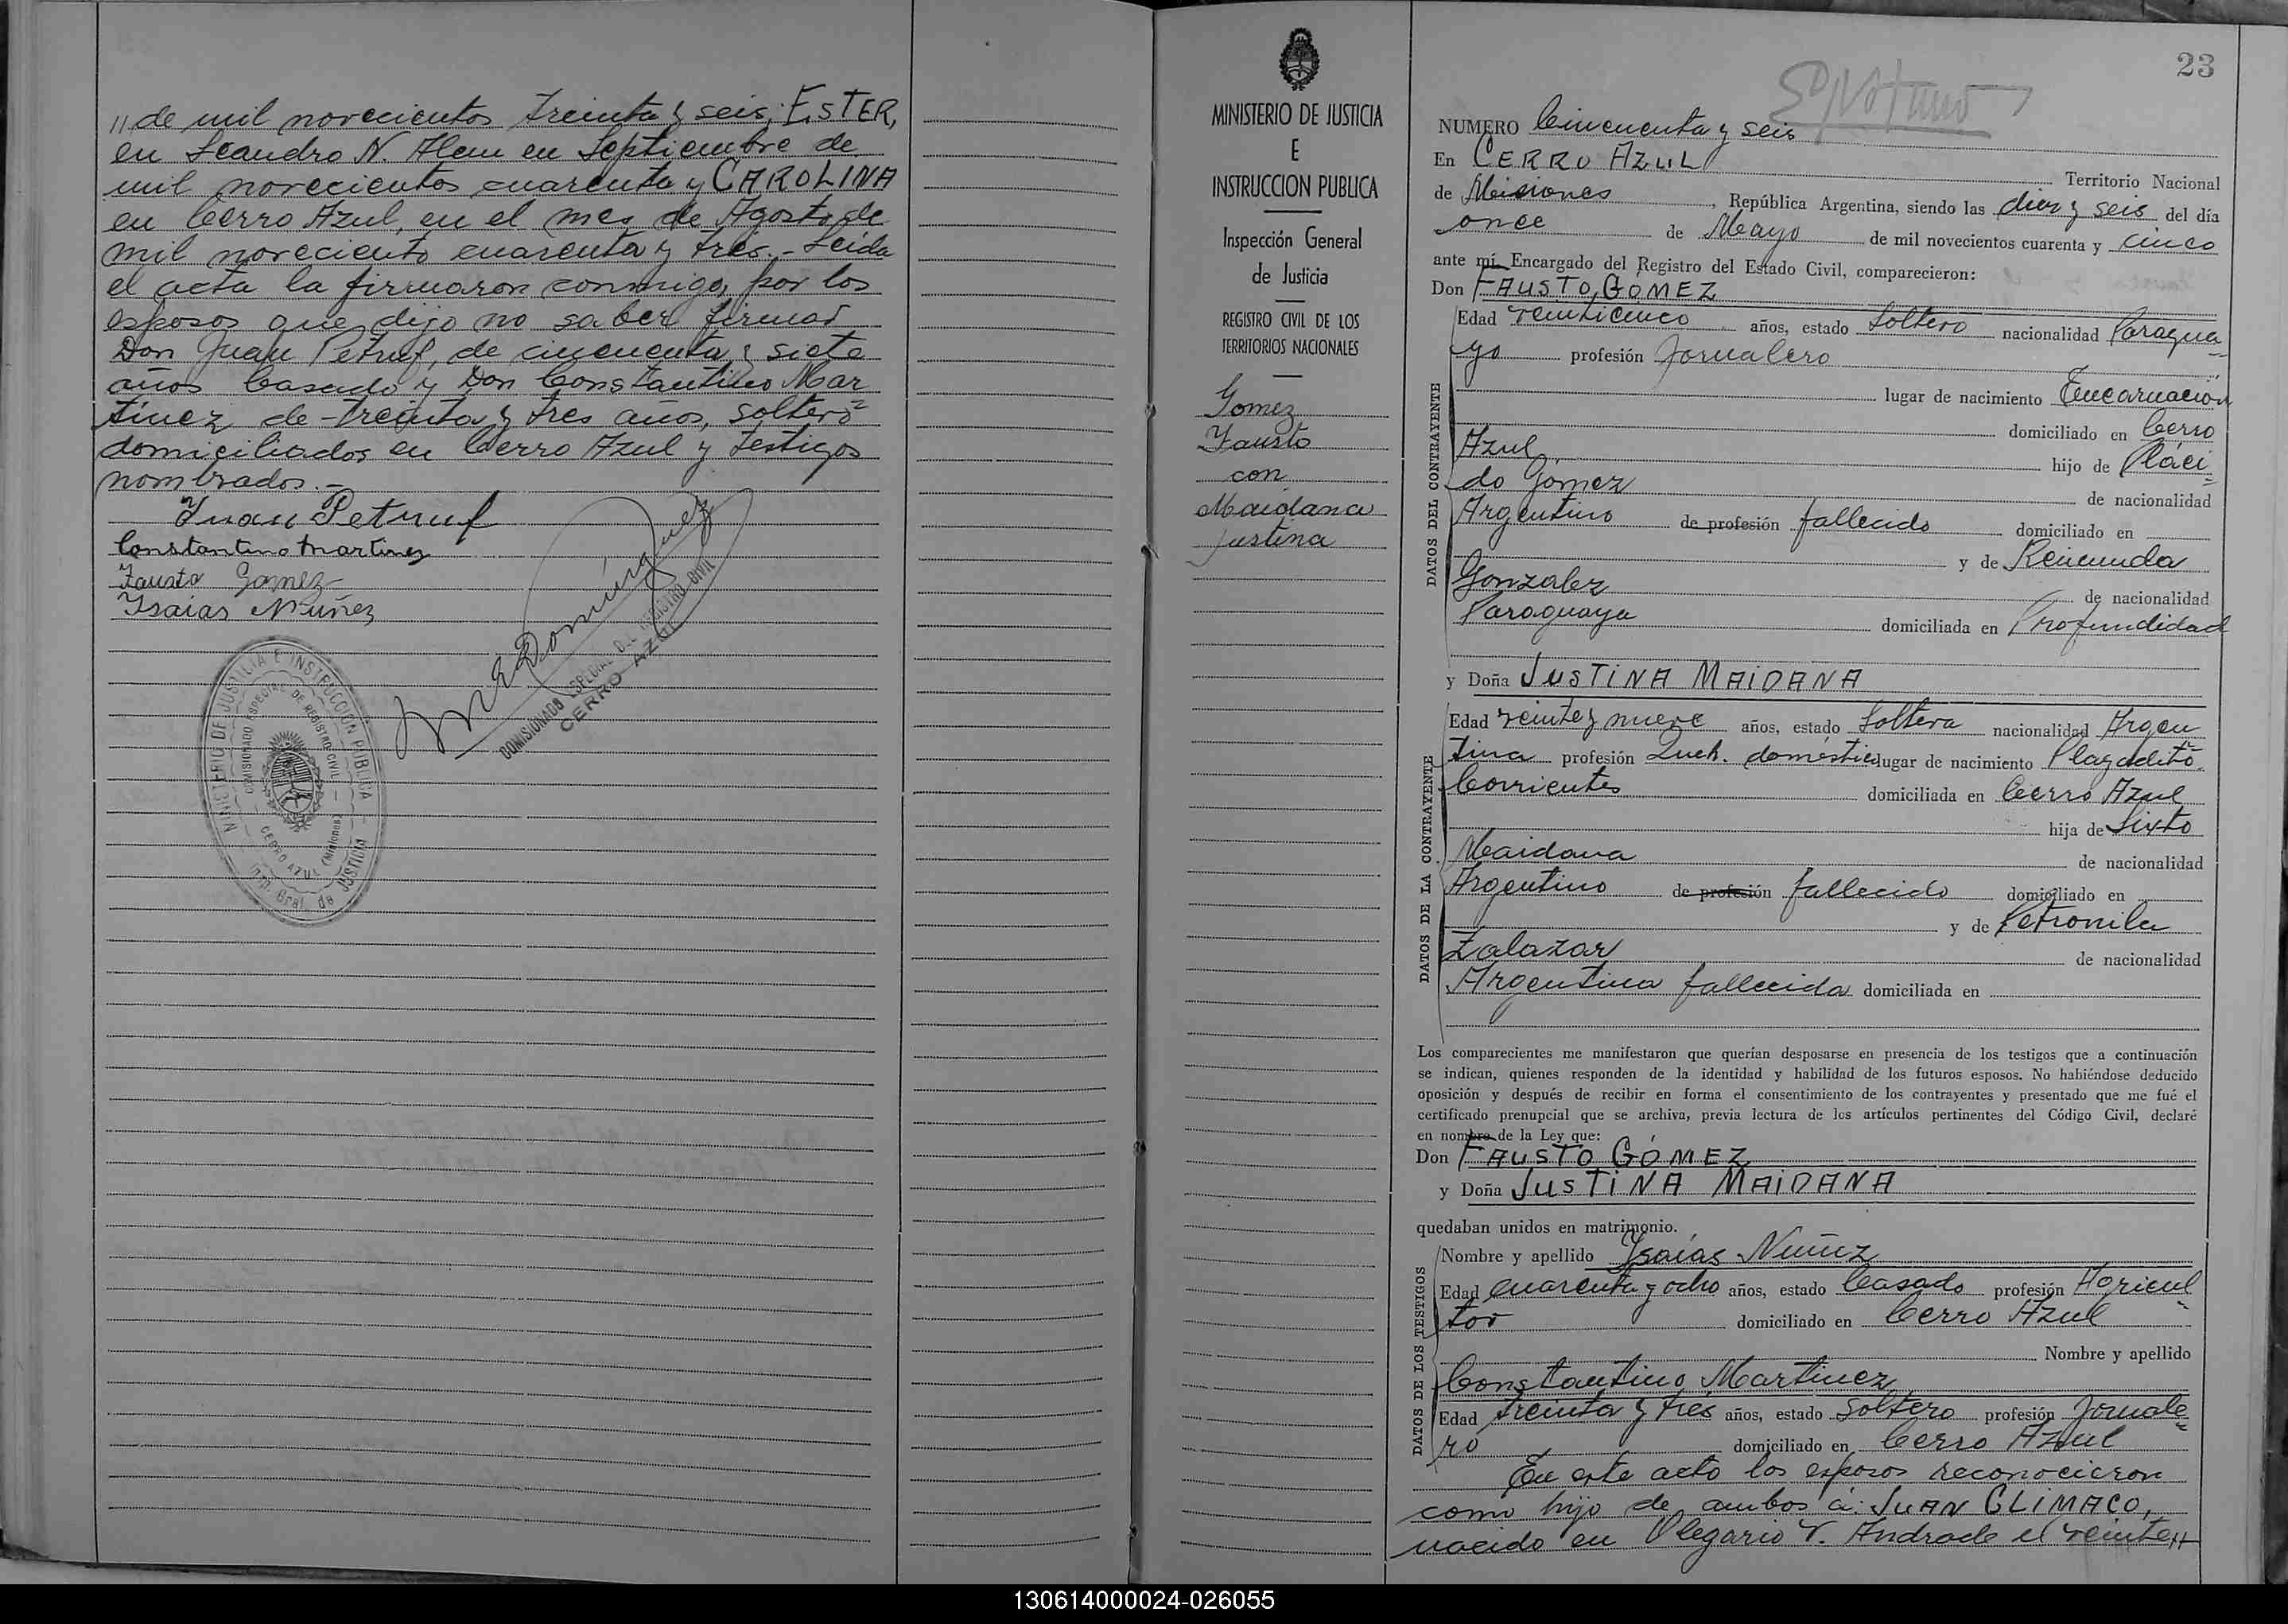 " de mil novecientos treinta y seis; ESTER,
en Leandro N. Alem en Septiembre de
mil novecientos cuarenta y CAROLINA
en Cerro Azul, en el mes de Agosto de
mil noveciento cuarenta y tres.- Leida
el acta la firmaron conmigo, por los
esposos que dijo no saber firmar
Don Juan Petruf, de cincuenta y siete
años Casado y Don Constantino Mar
tinez de treinta y tres años, soltero
domiciliados en Cerro Azul y testigos
nombrados.-
Juan Petruf
Constantino Martinez
Fausto Gomez
Isaias Nuñez
COMISIONADO ESPECIAL DEL REGISTRO CIVIL
CERRO AZUL
MINISTERIO DE JUSTICIA E INSTRUCCION PUBLICA
COMISIONADO ESPECIAL DE REGISTRO CIVIL
CERRO AZUL (Misiones)
Insp. Gral de JUSTICIA
MINISTERIO DE JUSTICIA
E
INSTRUCCION PUBLICA
Inspección General
de Justicia
REGISTRO CIVIL DE LOS
TERRITORIOS NACIONALES
Gomez
Fausto
con
Maidana
Justina
23
NUMERO Cincuenta y seis
En CERRO AZUL Territorio Nacional
de Misiones, República Argentina, siendo las diez y seis del día
once de Mayo de mil novecientos cuarenta y cinco
ante mí Encargado del Registro del Estado Civil, comparecieron:
Don FAUSTO GOMEZ
DATOS DEL CONTRAYENTE
Edad veinticinco años, estado Soltero nacionalidad Paragua
yo profesión Jornalero
lugar de nacimiento Encarnación
domiciliado en Cerro
Azul hijo de Pláci
do Gomez de nacionalidad
Argentino de profesión fallecido domiciliado en
y de Reimunda
Gonzalez de nacionalidad
Paraguaya domiciliada en Profundidad
y Doña JUSTINA MAIDANA
DATOS DE LA CONTRAYENTE
Edad veinte y nueve años, estado Soltera nacionalidad Argen
tina profesión Queh. domésticos lugar de nacimiento Playadito
Corrientes domiciliada en Cerro Azul
hija de Sixto
Maidana de nacionalidad
Argentino de profesión fallecido domiciliado en
y de Petronila
Zalazar de nacionalidad
Argentina fallecida domiciliada en
Los comparecientes me manifestaron que querían desposarse en presencia de los testigos que a continuación
se indican, quienes responden de la identidad y habilidad de los futuros esposos. No habiéndose deducido
oposición y después de recibir en forma el consentimiento de los contrayentes y presentado que me fué el
certificado prenupcial que se archiva, previa lectura de los artículos pertinentes del Código Civil, declaré
en nombre de la Ley que:
Don FAUSTO GÓMEZ
y Doña JUSTINA MAIDANA
quedaban unidos en matrimonio.
DATOS DE LOS TESTIGOS
Nombre y apellido Isaías Nuñez
Edad cuarenta y ocho años, estado Casado profesión Agricul
tor domiciliado en Cerro Azul
Nombre y apellido
Constantino Martinez
Edad treinta y tres años, estado Soltero profesión Jornale
ro domiciliado en Cerro Azul
En este acto los esposos reconocieron
como hijo de ambos a: JUAN CLIMACO,
nacido en Olegario V. Andrade el veinte "
130614000024-026055